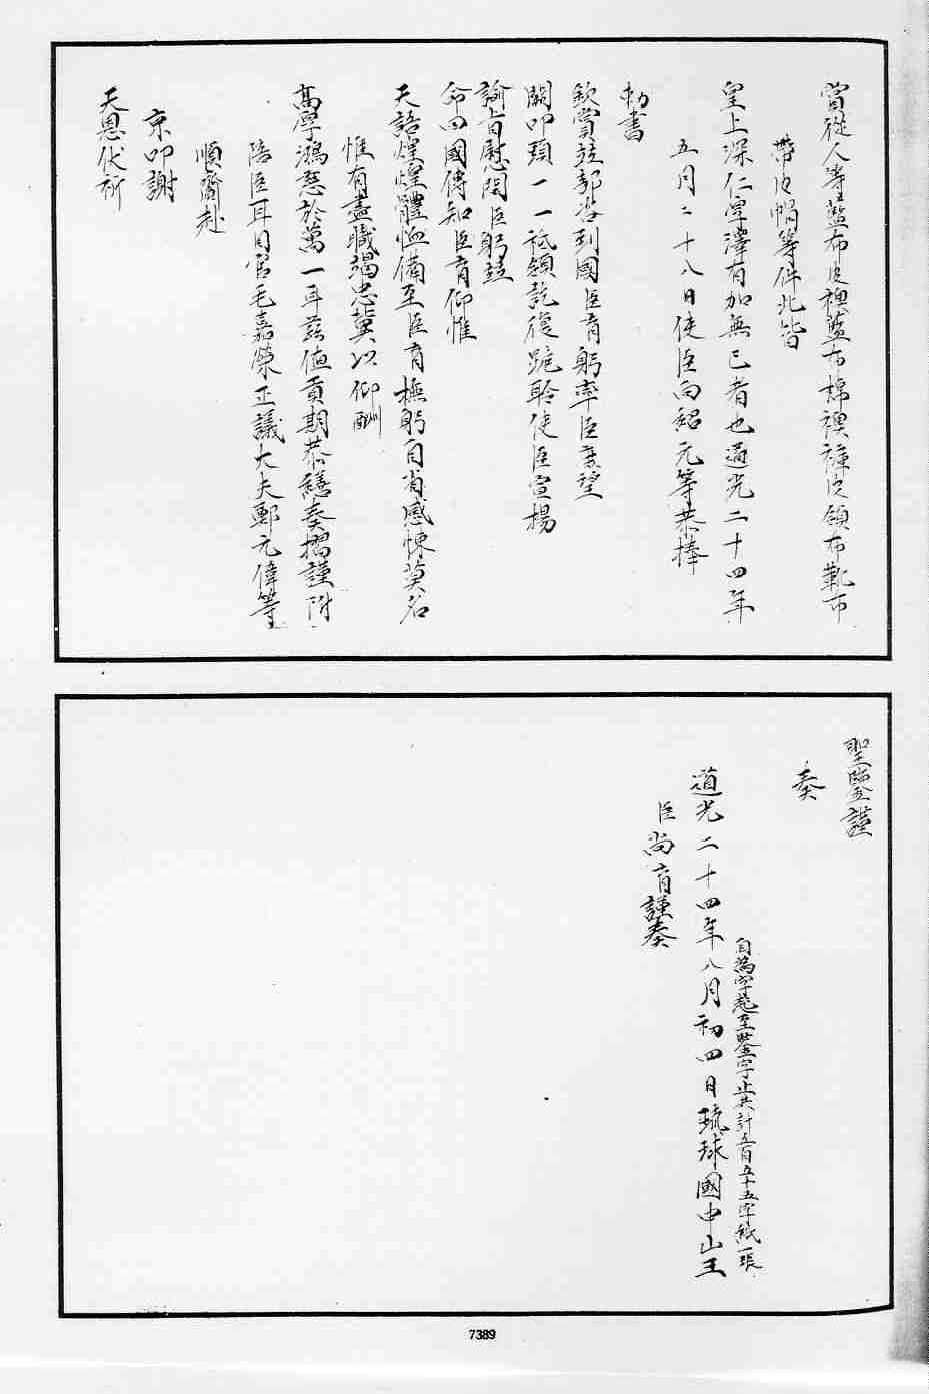 賞從人等藍布皮襖藍布棉襖褲皮領布靴布
帶皮帽等件此皆
皇上深仁厚澤有加無已者也道光二十四年
五月二十八日使臣向紹元等恭捧
勅書
欽賞並部咨到國臣育躬率臣庶望
闕叩頭一一祗領訖復跪聆使臣宣揚
諭旨慰問臣躬並
命回國傳知臣育仰惟
天語煌煌體恤備至臣育撫躬自省感悚莫名
惟有盡職竭忠冀以仰酬
高厚鴻慈於萬一耳茲值貢期恭繕奏摺謹附
陪臣耳目官毛嘉榮正議大夫鄭元偉等
順齎赴
京叩謝
天恩伏祈
聖鑒謹
奏
自為字起至鑒字止共計五百五十五字紙一張
道光二十四年八月初四日琉球國中山王
臣尚育謹奏
7389